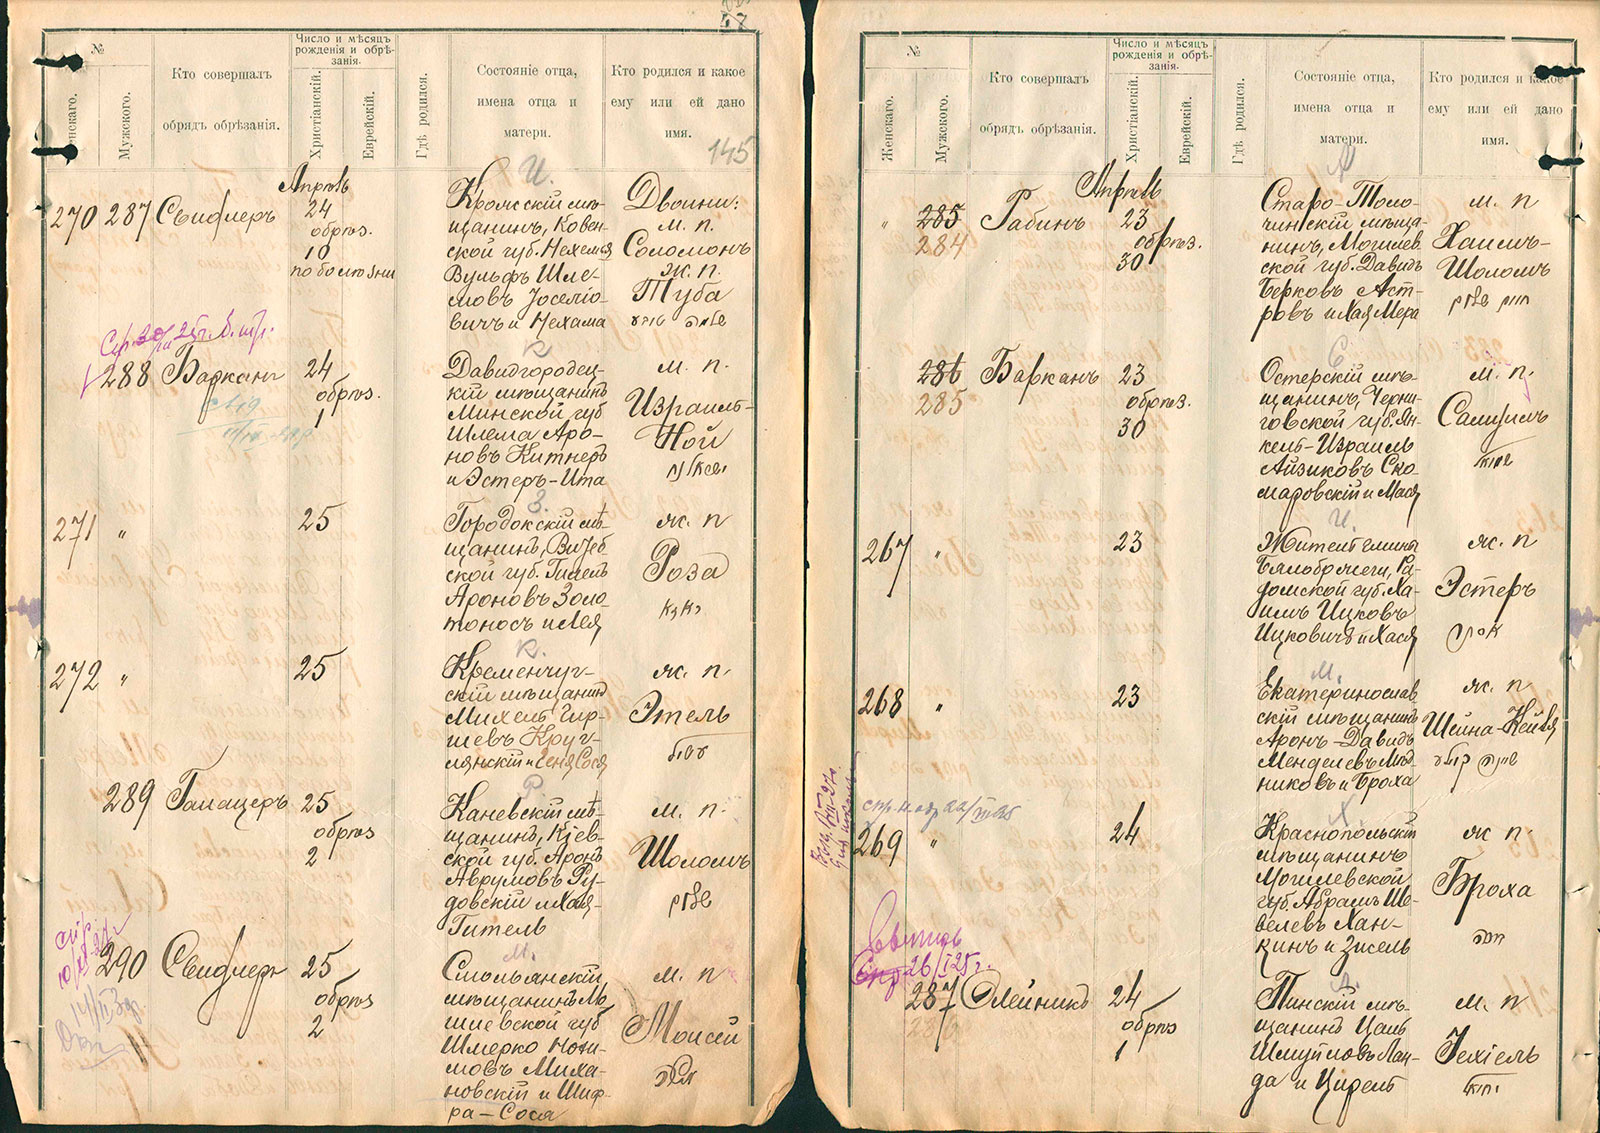 57
№
Женскаго.
Мужского.
Кто совершалъ
обрядъ обрѣзанія.
Число и мѣсяцъ
рожденія и обрѣ-
занія.
Христіанскій.
Еврейскій.
Гдѣ родился.
Состояніе отца,
имена отца и
матери.
Кто родился и какое
ему или ей дано
имя.
145
И.
Апрѣль
270 287 Свифлеръ
24
обрѣз.
10
по болѣзни
Кромскій мѣ-
щанинъ, Ковен-
ской губ. Нехемія
Вульфъ Шле-
мовъ Іоселіо-
вичъ и Нехама
Двойни:
м. п.
Соломонъ
ж. п.
Туба
К
288 Барканъ
24
обрѣз.
1
Давидгородец-
кій мѣщанинъ
Минской губ
Шлема Аро-
новъ Китнеръ
и Эстеръ-Ита
м. п.
Израиль-
Ной
З.
271 "
25
Городокскій мѣ-
щанинъ, Витеб-
ской губ. Гилель
Ароновъ Золо-
тоносъ и Лея
ж. п
Роза
К.
272 "
25
Кременчуг-
скій мѣщанинъ
Михель Гир-
шевъ Круг-
лянскій и Геня Сося
ж. п.
Этель
Р.
289 Галацеръ
25
обрѣз
2
Каневскій мѣ-
щанинъ, Кіев-
ской губ. Аронъ
Аврумовъ Ру-
довскій и Хая-
Гитель
м. п.
Шоломъ
М.
290 Свифлеръ
25
обрѣз
2
Смольянскій
мѣщанинъ Мо
гилевской губ
Шмерко Нохи-
мовъ Миха-
новскій и Шиф-
ра-Сося
м. п
Моисей
№
Женскаго.
Мужского.
Кто совершалъ
обрядъ обрѣзанія.
Число и мѣсяцъ
рожденія и обрѣ-
занія.
Христіанскій.
Еврейскій.
Гдѣ родился.
Состояніе отца,
имена отца и
матери.
Кто родился и какое
ему или ей дано
имя.
А
Апрѣль
" 285 Рабинъ
284
23
обрѣз.
30
Старо-Толо-
чинскій мѣща-
нинъ, Могилев
ской губ. Давидъ
Берковъ Аст-
ровъ и Хая Мера
м. п
Хаимъ-
Шоломъ
С
286 Барканъ
285
23
обрѣз.
30
Остерскій мѣ-
щанинъ, Черни-
говской губ. Ян-
кель-Израиль
Айзиковъ Ско-
маровскій и Мася
м. п.
Самуилъ
И.
267 "
23
Житель гмины
Бялобржеги, Ра-
домской губ. Ха-
имъ Ицковъ
Ицковичъ и Хася
ж. п
Эстеръ
М.
268 "
23
Екатеринослав
скій мѣщанинъ
Аронъ-Давидъ
Менделевъ Мѣд-
никовъ и Броха
ж. п
Шейна-Кейля
Х.
269 "
24
Краснопольскій
мѣщанинъ
Могилевской
губ. Абрамъ Ше-
велевъ Хан-
кинъ и Зисель
ж п
Броха
26/I 25 г.
Л.
287 Олейникъ
286
24
обрѣз
1
Пинскій мѣ-
щанинъ Цаль
Шмуйловъ Лан-
да и Цирель
м. п
Іехіель